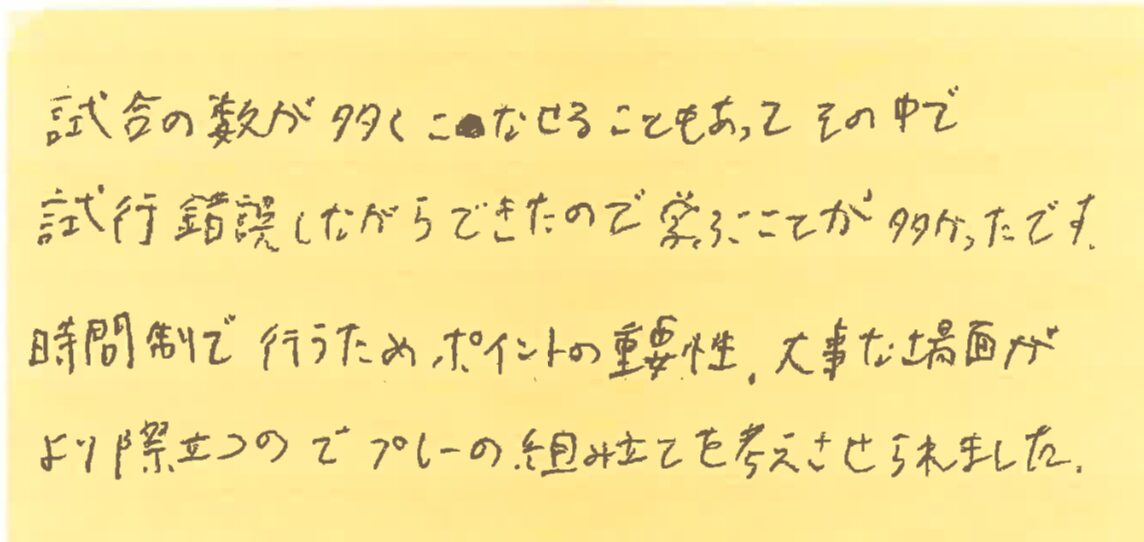 試合の数が多くこなせることもあってその中で
試行錯誤しながらできたので学ぶことが多かったです.
時間制で行うため、ポイントの重要性、大事な場面が
より際立つのでプレーの組み立てを考えさせられました.